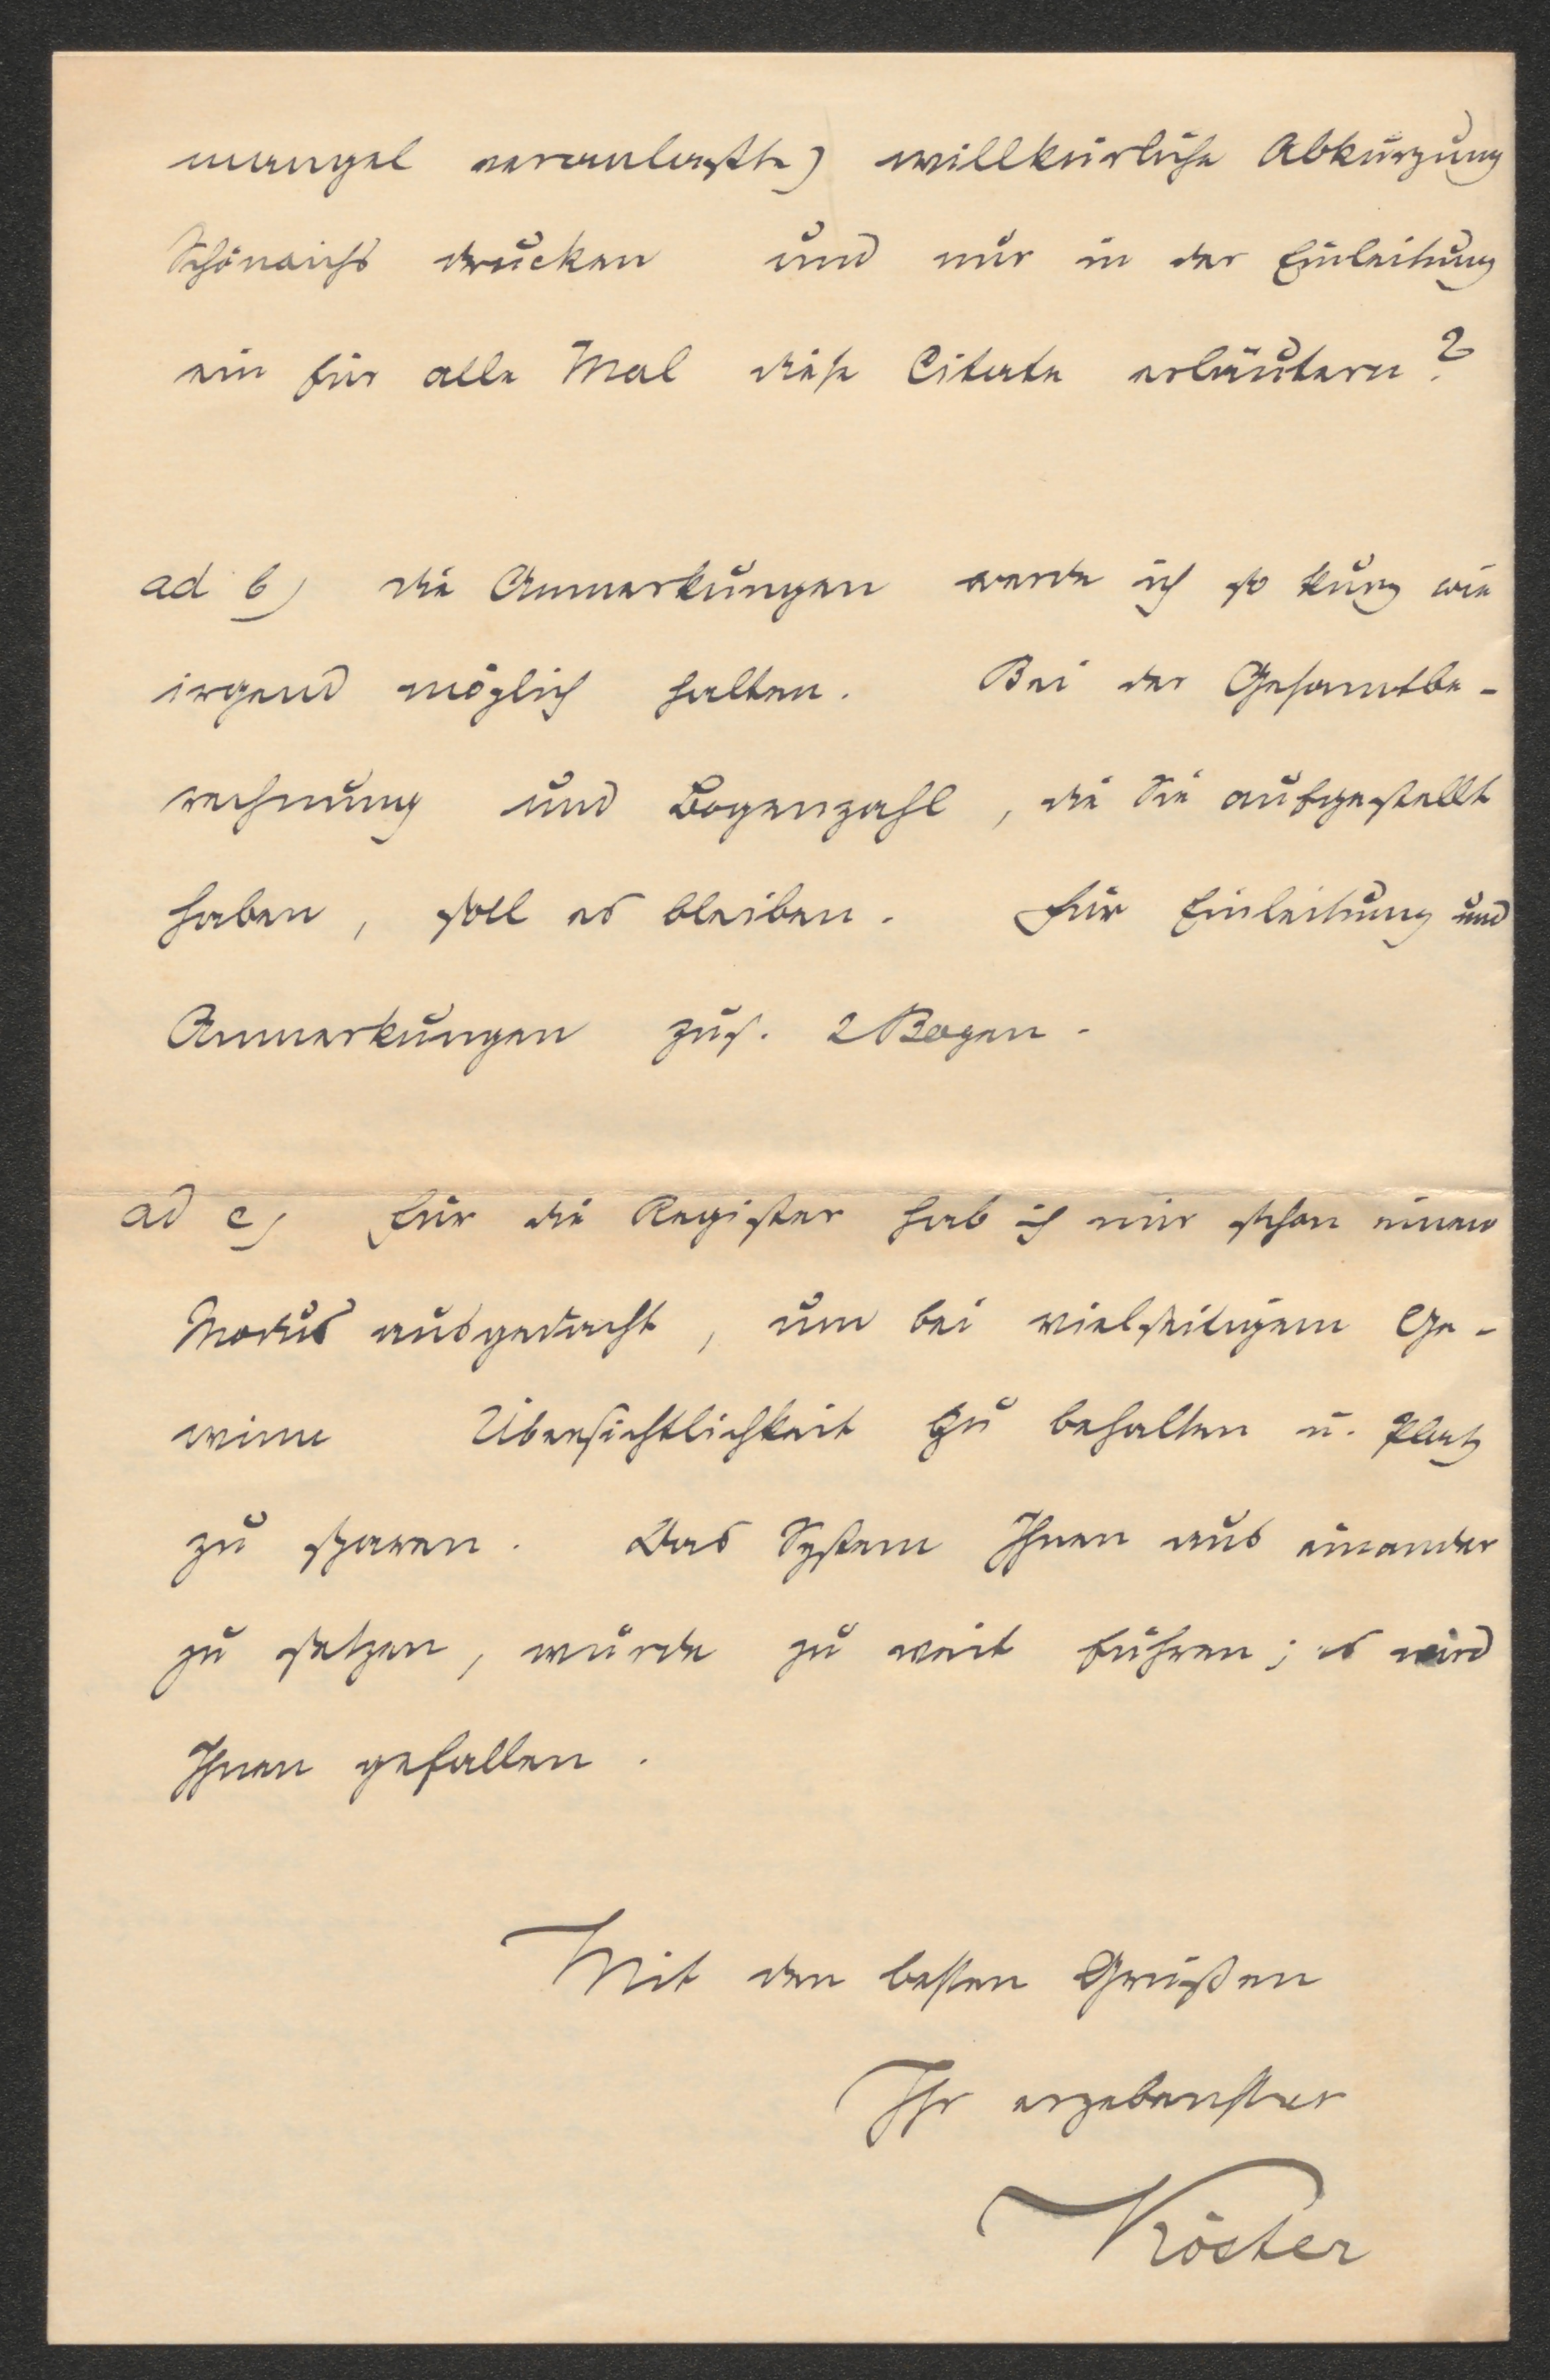 mangel veranlaßte) willkürliche Abkürzung
Schönaichs drucken und nur in der Einleitung
ein für alle Mal diese Citate erläutern?
ad b) die Anmerkungen werde ich so kurz wie
irgend möglich halten. Bei der Gesamtbe-
rechnung und Bogenzahl, die Sie aufgestellt
haben, soll es bleiben. Für Einleitung und
Anmerkungen zus. 2 Bogen.
ad c) für die Register hab ich mir schon einen
Modus ausgedacht, um bei vielseitigem Ge-
winn Übersichtlichkeit zu behalten u. Platz
zu sparen. Das System Ihnen aus einander
zu setzen, würde zu weit führen; es wird
Ihnen gefallen.
Mit den besten Grüßen
Ihr ergebenster
Köster